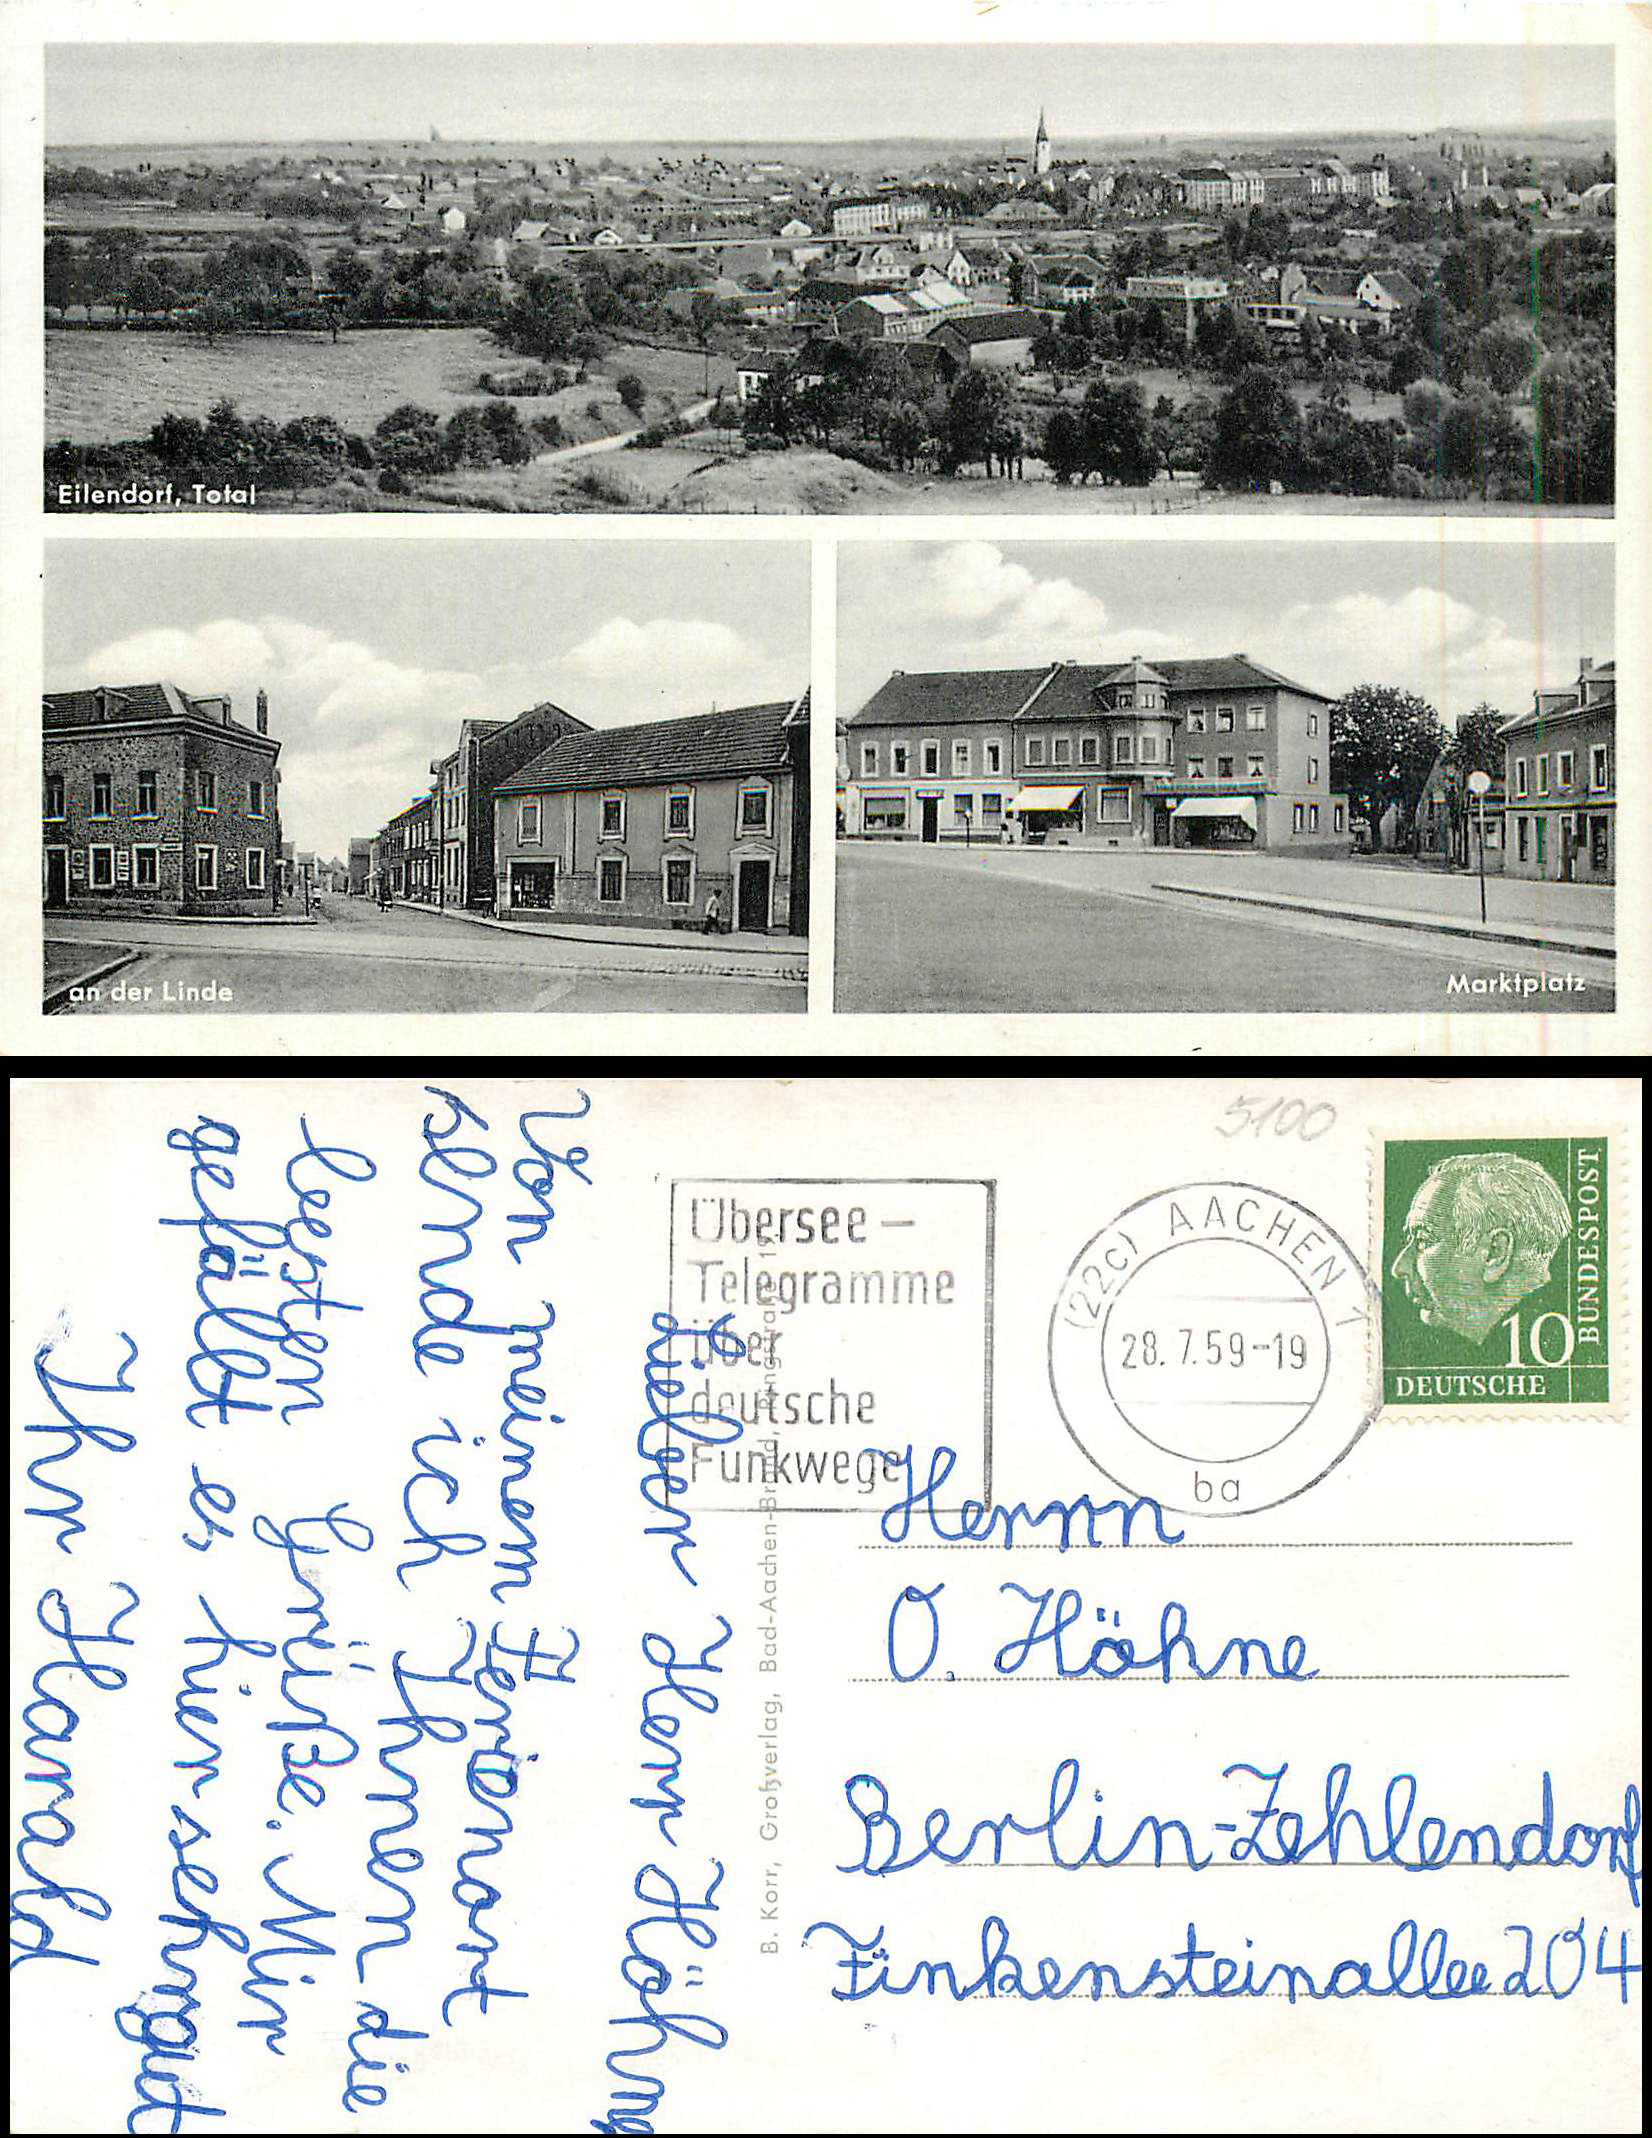 Eilendorf, Total
an der Linde
Marktplatz
5100
Übersee-
Telegramme
über
deutsche
Funkwege
(22c) AACHEN 1
28.7.59-19
ba
10
DEUTSCHE
BUNDESPOST
Lieber Herr Höhne
Von meinem Ferienort
sende ich Ihnen die
besten Grüße. Mir
gefällt es hier sehr gut
Ihr Harald
B. Korr, Großverlag, Bad-Aachen-Brand, Ringstraße 19
Herrn
O. Höhne
Berlin-Zehlendorf
Finkensteinallee 204